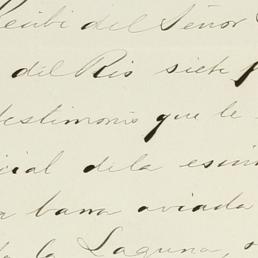 Recibí del Señor
del Rio siete
testimonio que le
cial dela escri
a barra aviada
la Laguna, s